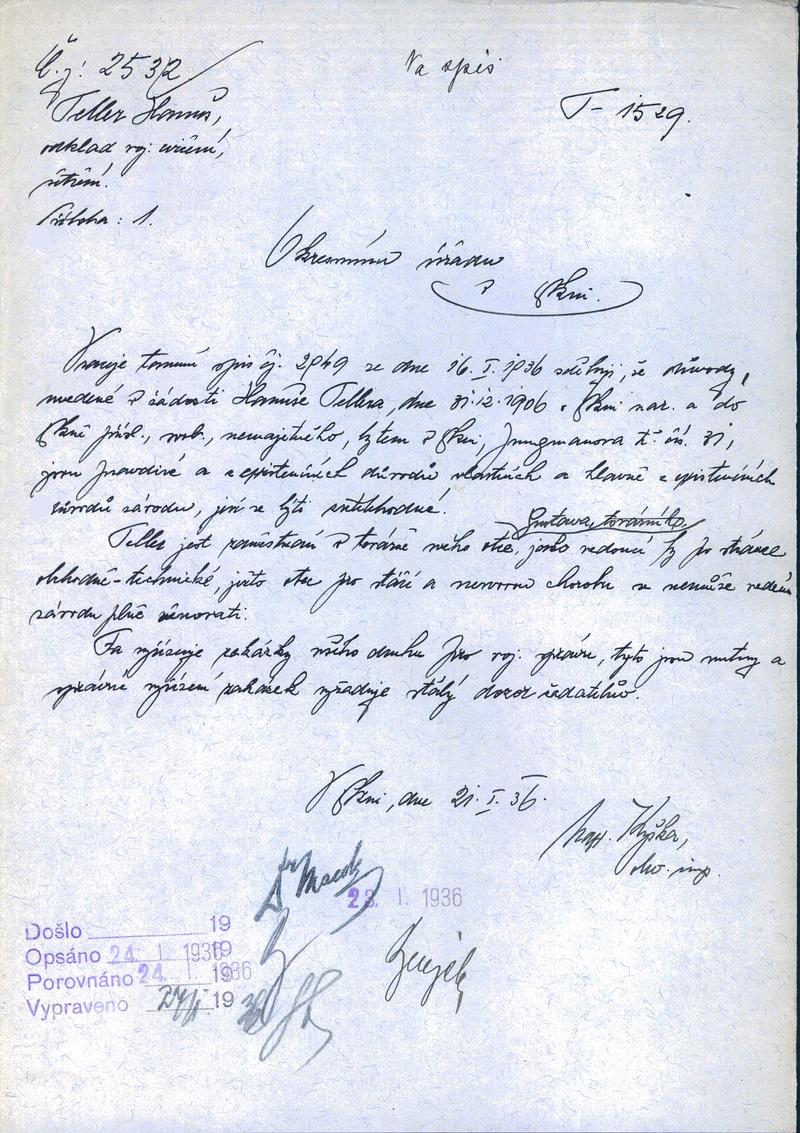 Č.j: 2532
Na spis
T- 1529.
Teller Hanuš,
odklad voj. cvičení,
šetření.
Příloha: 1.
Okresnímu úřadu
v Plzni.
Vracuje tamní spis čj. 2949 ze dne 16. I. 1936 sděluji, že důvody,
uvedené v žádosti Hanuše Tellera, dne 31.12.1906 v Plzni nar. a do
Plzně přísl., svob., nemajetného, bytem v Plzni, Jungmanova tř. čís. 31,
jsou pravdivé a z existenčních důvodů vlastních a hlavně z existenčních
důvodů závodu, jeví se býti
Gustava, továrníka
Teller jest zaměstnán v továrně svého otce, jako vedoucí by po stránce
obchodně-technické, ježto otec pro stáří a nervovou chorobu se nemůže vedení
závodu plně věnovati.
Fa vyřizuje zakázky všeho druhu pro voj. správu, tyto jsou nutny a
správné vyřízení zakázek vyžaduje stálý dozor žadatelův.
V Plzni, dne 21. I. 36.
insp.
23. I. 1936
Došlo 19
Opsáno 24. I. 1936 19
Porovnáno 24. I. 1936 19
Vypraveno 24/I 19 36